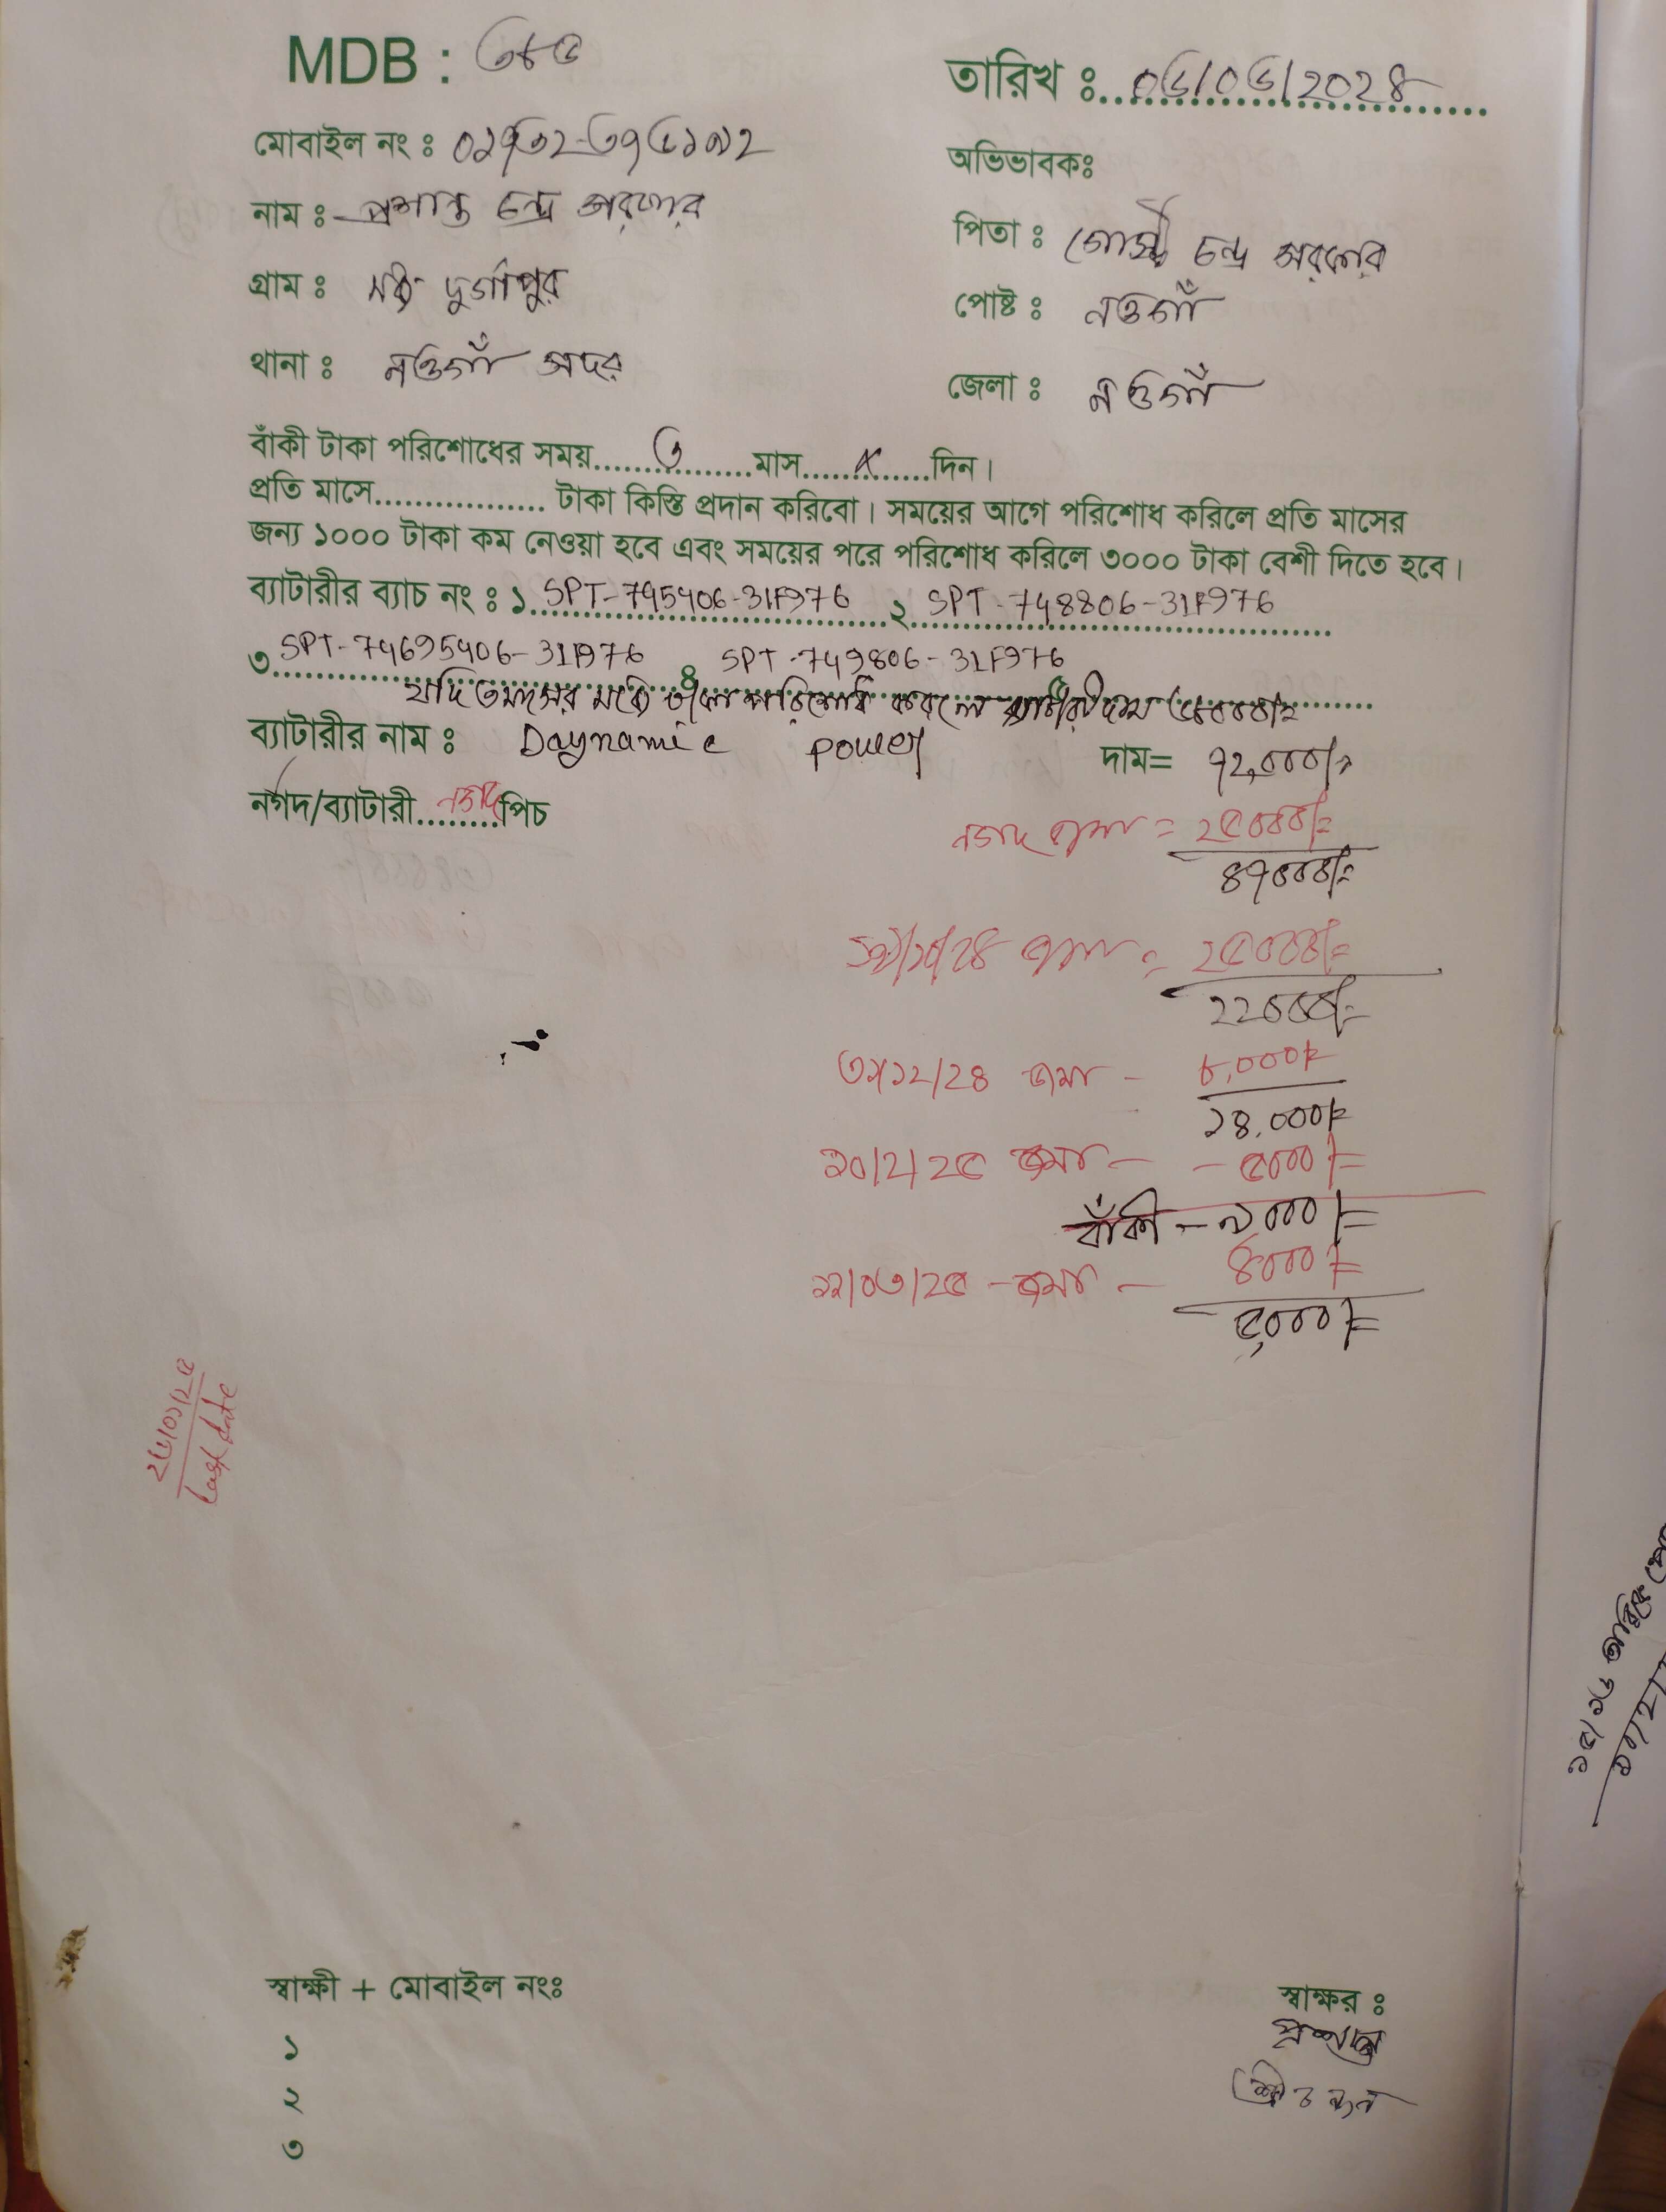 MDB : ৩৪৫
তারিখ ঃ 06/06/2028
মোবাইল নং ঃ ০১৭৩২-৩৭৫১৯২
অভিভাবকঃ
নাম ঃ প্রশান্ত চন্দ্র সরকার
পিতা ঃ চন্দ্র সরকার
গ্রাম ঃ দুর্গাপুর
পোষ্ট ঃ নওগাঁ
থানা ঃ নওগাঁ সদর
জেলা ঃ নওগাঁ
বাঁকী টাকা পরিশোধের সময়......৩......মাস......×......দিন।
প্রতি মাসে................. টাকা কিস্তি প্রদান করিবো। সময়ের আগে পরিশোধ করিলে প্রতি মাসের
জন্য ১০০০ টাকা কম নেওয়া হবে এবং সময়ের পরে পরিশোধ করিলে ৩০০০ টাকা বেশী দিতে হবে।
ব্যাটারীর ব্যাচ নং ঃ ১. SPT-795406-31F976 ২ SPT-748806-31F976
৩ SPT-74695406-31F976 ৪ SPT-749806-31F976
যদি তিন মাসের মধ্যে টাকা পরিশোধ করলে ব্যাটারী দাম
ব্যাটারীর নাম ঃ Daynamic power দাম= ৭২,০০০/=
নগদ/ব্যাটারী........নগদ পিচ
নগদ জমা = ২৫০০০/=
৪৭০০০/=
/২৪ জমা = ২৫০০০/=
২২০০০/=
৩১/১২/২৪ জমা - ৮,০০০/=
১৪,০০০/=
২০/২/২৫ জমা - - ৫০০০/=
বাঁকী - ৯০০০/=
২২/০৩/২৫ - জমা - ৪০০০/=
৫,০০০/=
last date
স্বাক্ষী + মোবাইল নংঃ
স্বাক্ষর ঃ
প্রশান্ত
১
২
৩